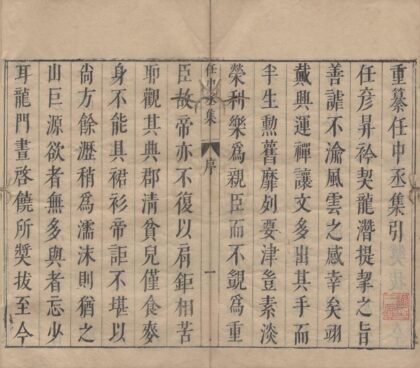 重纂任中丞集引
任彥昇衿契龍潛提挈之旨
善謔不渝風雲之感幸矣翊
戴興運禪讓文多出其手而
半生勳舊靡列要津豈素淡
榮利樂爲親臣而不覬爲重
任中丞集 序 一
臣故帝亦不復以肩鉅相苦
耶觀其典郡清貧兒僅食麥
身不能具裙衫帝詎不堪以
尚方餘瀝稍爲濡沫則猶之
山巨源欲者無多與者忘少
耳龍門晝啓饒所奬拔至今